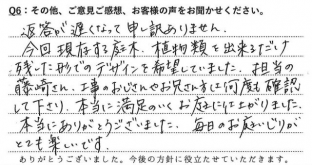 Q6：その他、ご意見ご感想、お客様の声をお聞かせください。
返答が遅くなって申し訳ありません。
今回現存する庭木、植物類を出来るだけ
残した形でのデザインを希望していました。担当の
藤崎さん、工事のおじさんやお兄さん方には何度も確認
して下さり、本当に満足のいくお庭に仕上がりました。
本当にありがとうございました。毎日のお庭いじりが
とても楽しいです。
ありがとうございました。今後の方針に役立たせていただきます。